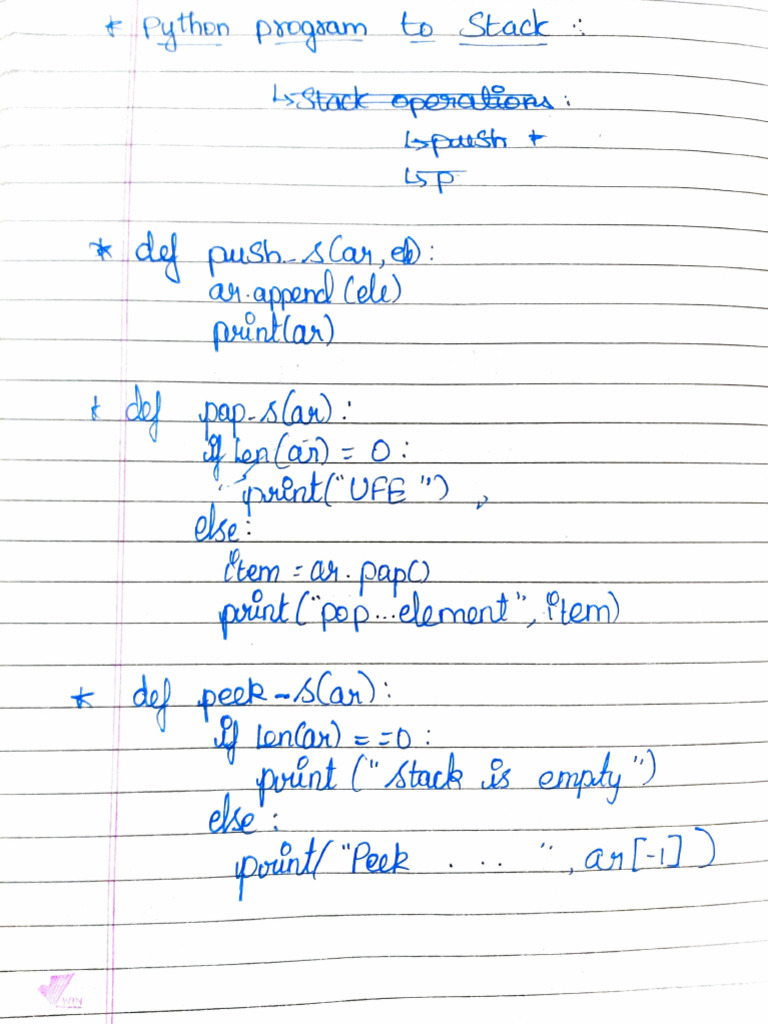 * Python program to Stack :
↳ Stack operations :
↳ push *
↳ p
* def push_s(ar, ele):
ar.append(ele)
print(ar)
* def pap_s(ar):
if len(ar) = 0 :
print("UFE")
else:
item = ar.pap()
print("pop...element", item)
* def peek_s(ar):
if len(ar) = = 0 :
print ("stack is empty")
else :
print( "Peek . . . ", ar[-1] )
WIN